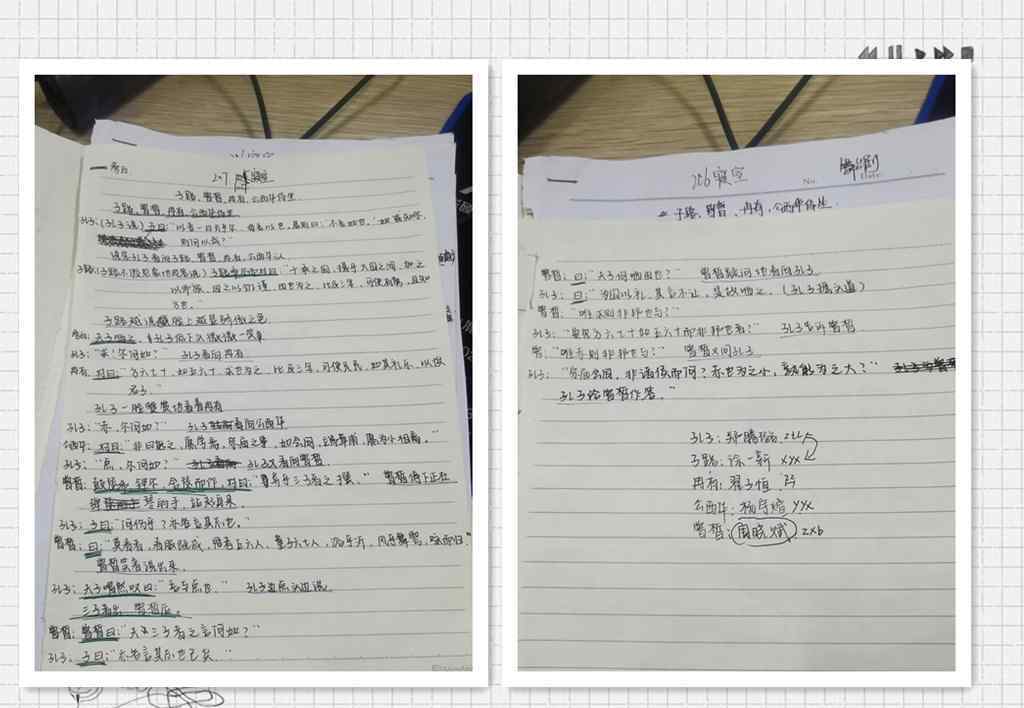 旁白
207 寝室
子路、曾皙、冉有、公西华侍坐
子路、曾皙、冉有、公西华侍坐
孔子:(孔子说)子曰:“以吾一日长乎尔,毋吾以也。居则曰:不吾知也!如或知尔,
则何以哉?”
孔子看向子路、曾皙、冉有、公西华
子路(子路不假思索)子路率尔对曰:“千乘之国,摄乎大国之间,加之
以师旅,因之以饥馑,由也为之,比及三年,可使有勇,且知
方也。”
子路越说脸上越显骄傲之色
夫子哂之,孔子微微一笑
孔子:“求!尔何如?” 孔子看向冉有
冉有:对曰:“方六七十,如五六十,求也为之,比及三年,可使足民,如其礼乐,以俟
君子。”
孔子一脸赞赏地看着冉有
孔子:“赤,尔何如?” 孔子看向公西华
公西华:对曰:“非曰能之,愿学焉,宗庙之事,如会同,端章甫,愿为小相焉。”
孔子:“点,尔何如?” 孔子又看向曾皙
曾皙:鼓瑟希,铿尔,舍瑟而作,对曰:“异乎三子者之撰。” 曾皙停下正在
琴的手,站起身来
孔子:子曰:“何伤乎?亦各言其志也。”
曾皙:曰:“莫春者,春服既成,冠者五六人,童子六七人,浴乎沂,风乎舞雩,咏而归。”
曾皙笑着说出来
孔子:夫子喟然叹曰:“吾与点也” 孔子边点头边说
三子者出,曾皙后。
曾皙:曾皙曰:“夫三子者之言何如?”
孔子:子曰:“亦各言其志也已矣。”
206 寝室
No.
Date.
子路、曾皙、冉有、公西华侍坐
曾皙:曰:“夫子何哂由也?” 曾皙疑问地看向孔子
孔子:曰:“为国以礼,其言不让,是故哂之。(孔子摇头道)
曾皙:“唯求则非邦也与?”
孔子:“安见方六七十如五六十而非邦也者?” 孔子告诉曾皙
曾:“唯赤则非邦也与?” 曾皙又问孔子
孔子:“宗庙会同,非诸侯而何?赤也为之小,孰能为之大?”
孔子给曾皙作答。”
孔子:
子路:徐一新 xyx
冉有:翟子恒
公西华:杨宇 yyx
曾皙:周晓斌 zxb